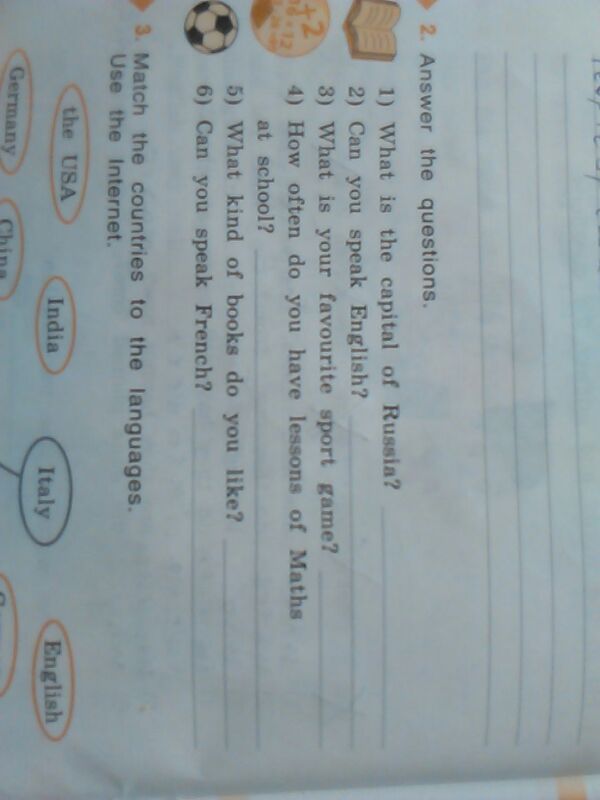 2. Answer the questions.
1) What is the capital of Russia?
2) Can you speak English?
3) What is your favourite sport game?
4) How often do you have lessons of Maths
at school?
5) What kind of books do you like?
6) Can you speak French?
3. Match the countries to the languages.
Use the Internet.
the USA India Italy English
Germany China